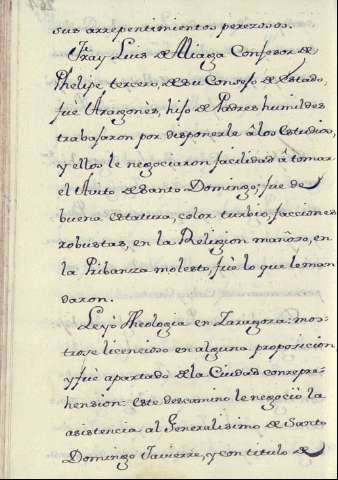 sus arrepentimientos perezosos.
Fray Luis de Aliaga Confesor de
Phelipe tercero, de su Consejo de Estado,
fuè Aragonès, hijo de Padres humildes
trabajaron por disponerle â los Estudios,
y ellos le negociaron facilidad â tomar
el Avito de Santo Domingo; fue de
buena estatura, color turbio, facciones
robustas, en la Religion mañoso, en
la Pribanza molesto, fuè lo que le man
daron.
Leyò Theologia en Zaragoza: mos-
trose licencioso en alguna proposicion
y fuè apartado de la Ciudad con repre-
hension: este descamino le negociò la
asistencia al Generalisimo de Santo
Domingo Javierre, y con titulo de